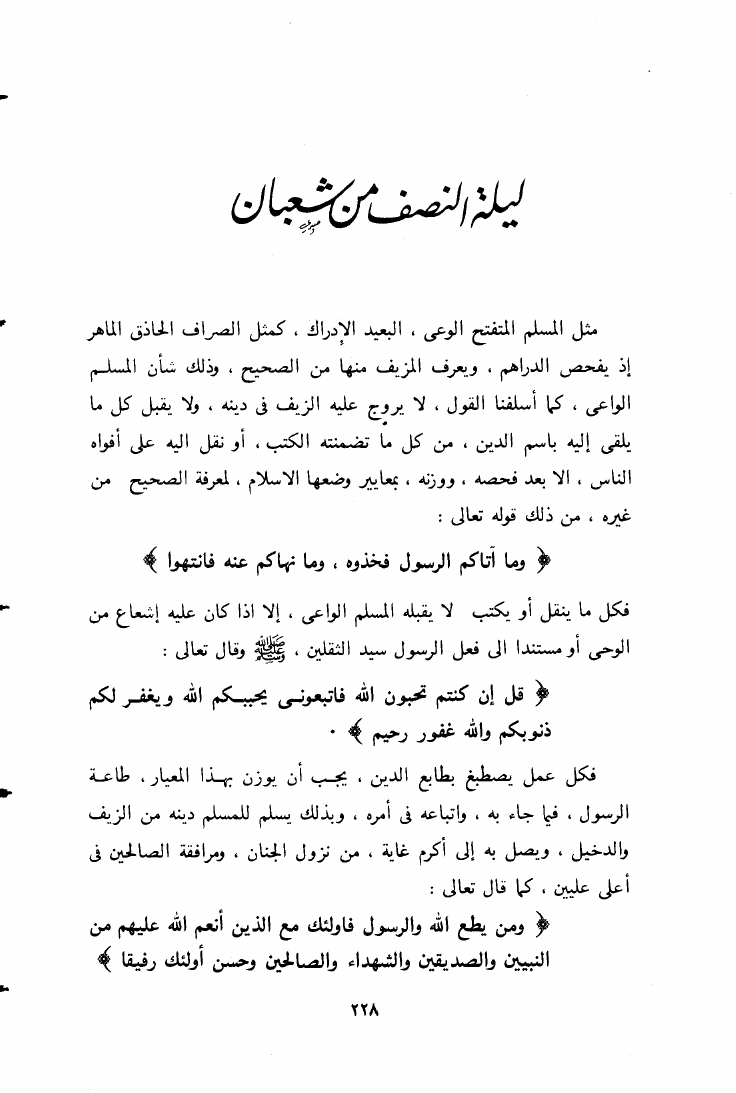 ليلة النصف من شعبان
مثل المسلم المتفتح الوعى ، البعيد الإدراك ، كمثل الصراف الحاذق الماهر
إذ يفحص الدراهم ، ويعرف المزيف منها من الصحيح ، وذلك شأن المسلم
الواعى ، كما أسلفنا القول ، لا يروج عليه الزيف فى دينه ، ولا يقبل كل ما
يلقى إليه باسم الدين ، من كل ما تضمنته الكتب ، أو نقل اليه على أفواه
الناس ، الا بعد فحصه ، ووزنه ، بمعايير وضعها الاسلام ، لمعرفة الصحيح من
غيره ، من ذلك قوله تعالى :
﴿ وما آتاكم الرسول فخذوه ، وما نهاكم عنه فانتهوا ﴾
فكل ما ينقل أو يكتب لا يقبله المسلم الواعى ، إلا اذا كان عليه إشعاع من
الوحى أو مستندا الى فعل الرسول سيد الثقلين ، ﷺ وقال تعالى :
﴿ قل إن كنتم تحبون الله فاتبعونى يحببكم الله ويغفر لكم
ذنوبكم والله غفور رحيم ﴾ .
فكل عمل يصطبغ بطابع الدين ، يجب أن يوزن بهذا المعيار ، طاعة
الرسول ، فيما جاء به ، واتباعه فى أمره ، وبذلك يسلم للمسلم دينه من الزيف
والدخيل ، ويصل به إلى أكرم غاية ، من نزول الجنان ، ومرافقة الصالحين فى
أعلى عليين ، كما قال تعالى :
﴿ ومن يطع الله والرسول فاولئك مع الذين أنعم الله عليهم من
النبيين والصديقين والشهداء والصالحين وحسن أولئك رفيقا ﴾
٢٢٨